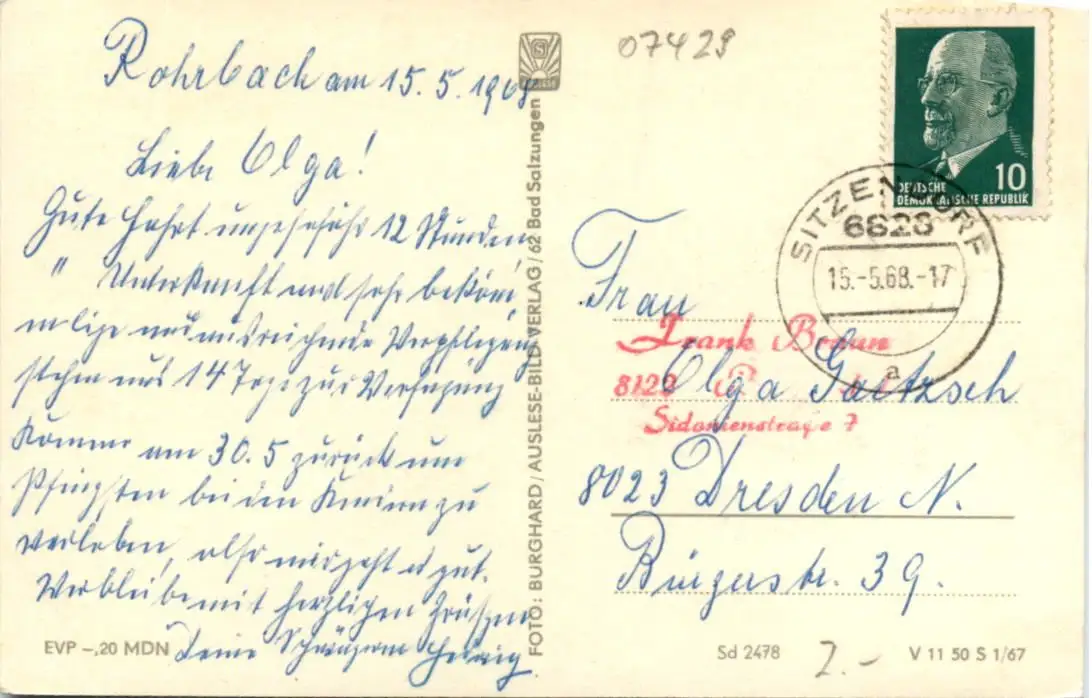 Rohrbach am 15.5.1968
Liebe Olga!
Gute Fahrt ungefähr 12 Stunden
" Unterkunft und sehr beköm
mlige und ausreichende Verpflegung
stehn uns 14 Tage zur Verfügung
Komme am 30.5 zurück um
Pfingsten bei den Kindern zu
verleben, also mir geht es gut.
Verbleibe mit herzligen Grüßen
Deine Schwägerin Hedwig
EVP -,20 MDN
FOTO: BURGHARD / AUSLESE-BILD-VERLAG / 62 Bad Salzungen
07429
DEUTSCHE
DEMOKRATISCHE REPUBLIK
10
SITZENDORF
6823
15.-5.68.-17
a
Frau
Frank Braun
Olga Gaitzsch
8122
Sidonienstraße 7
8023 Dresden N.
Bürgerstr. 39.
Sd 2478
2.-
V 11 50 S 1/67